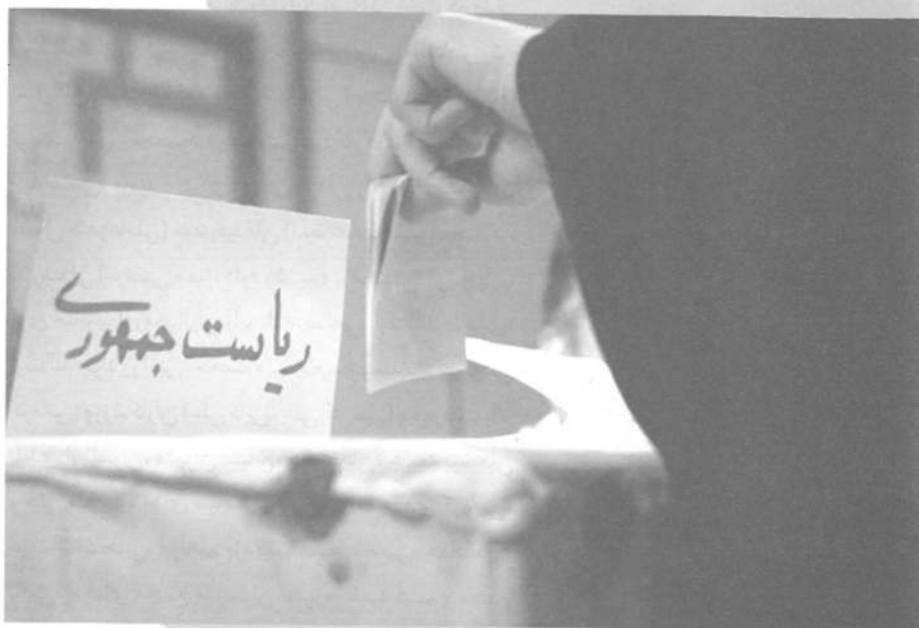 ریاست جمهوری